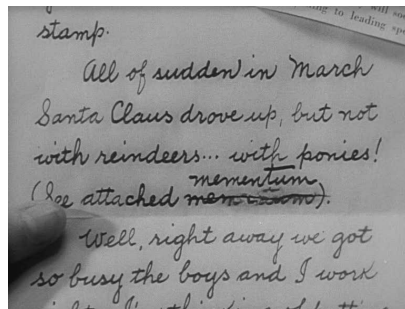 will so
ng to leading spe
stamp.
All of sudden in March
Santa Claus drove up, but not
with reindeers... with ponies!
mementum
(See attached).
Well, right away we got
so busy the boys and I work